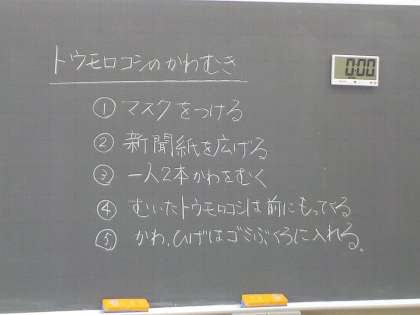 トウモロコシのかわむき
0:00
① マスクをつける
② 新聞紙を広げる
③ 一人2本かわをむく
④ むいたトウモロコシは前にもってくる
⑤ かわ、ひげはゴミぶくろに入れる。